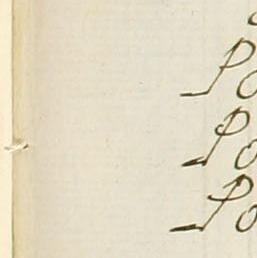 Po
Po
Po